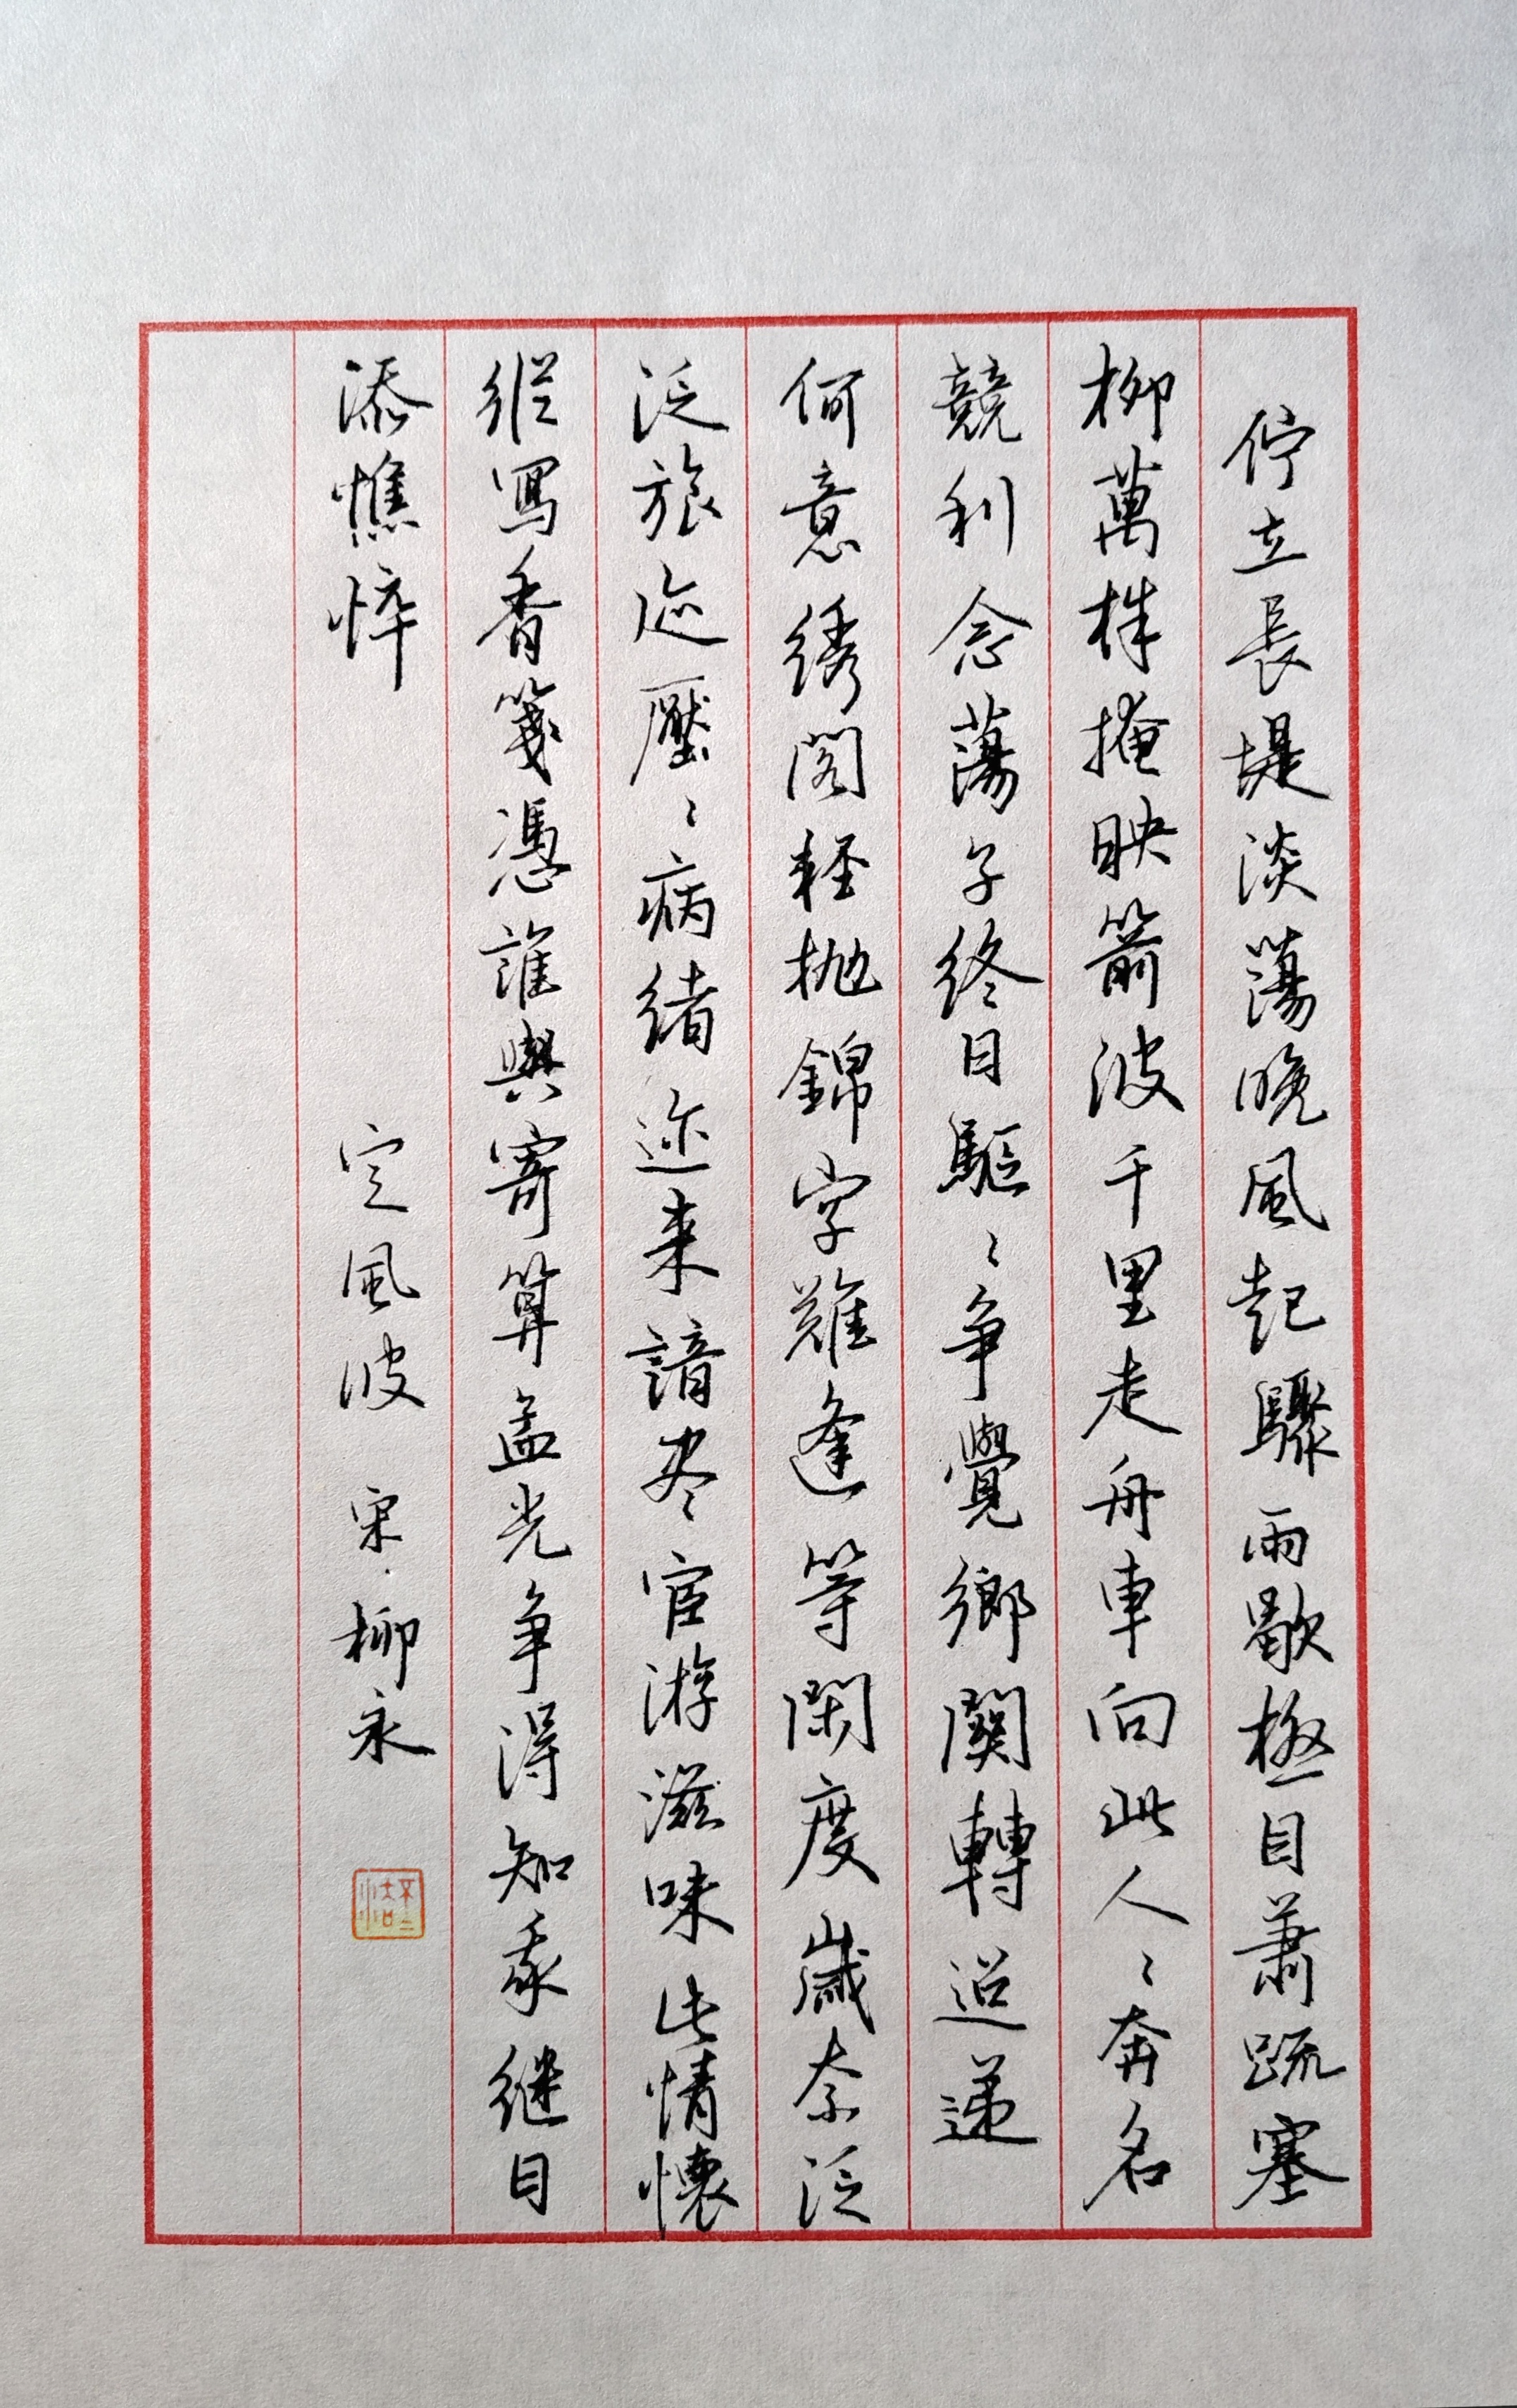 佇立長堤淡蕩晚風起驟雨歇極目蕭疏塞
柳萬株掩映箭波千里走舟車向此人〻奔名
競利念蕩子終日驅〻争覺鄉關轉迢递
何意綉閣輕抛錦字難逢等閑度歲奈泛
泛旅迹壓〻病緒迩来諳尽宦游滋味此情懷
縱寫香箋憑誰與寄算孟光争得知我继日
添憔悴
定風波 宋·柳永